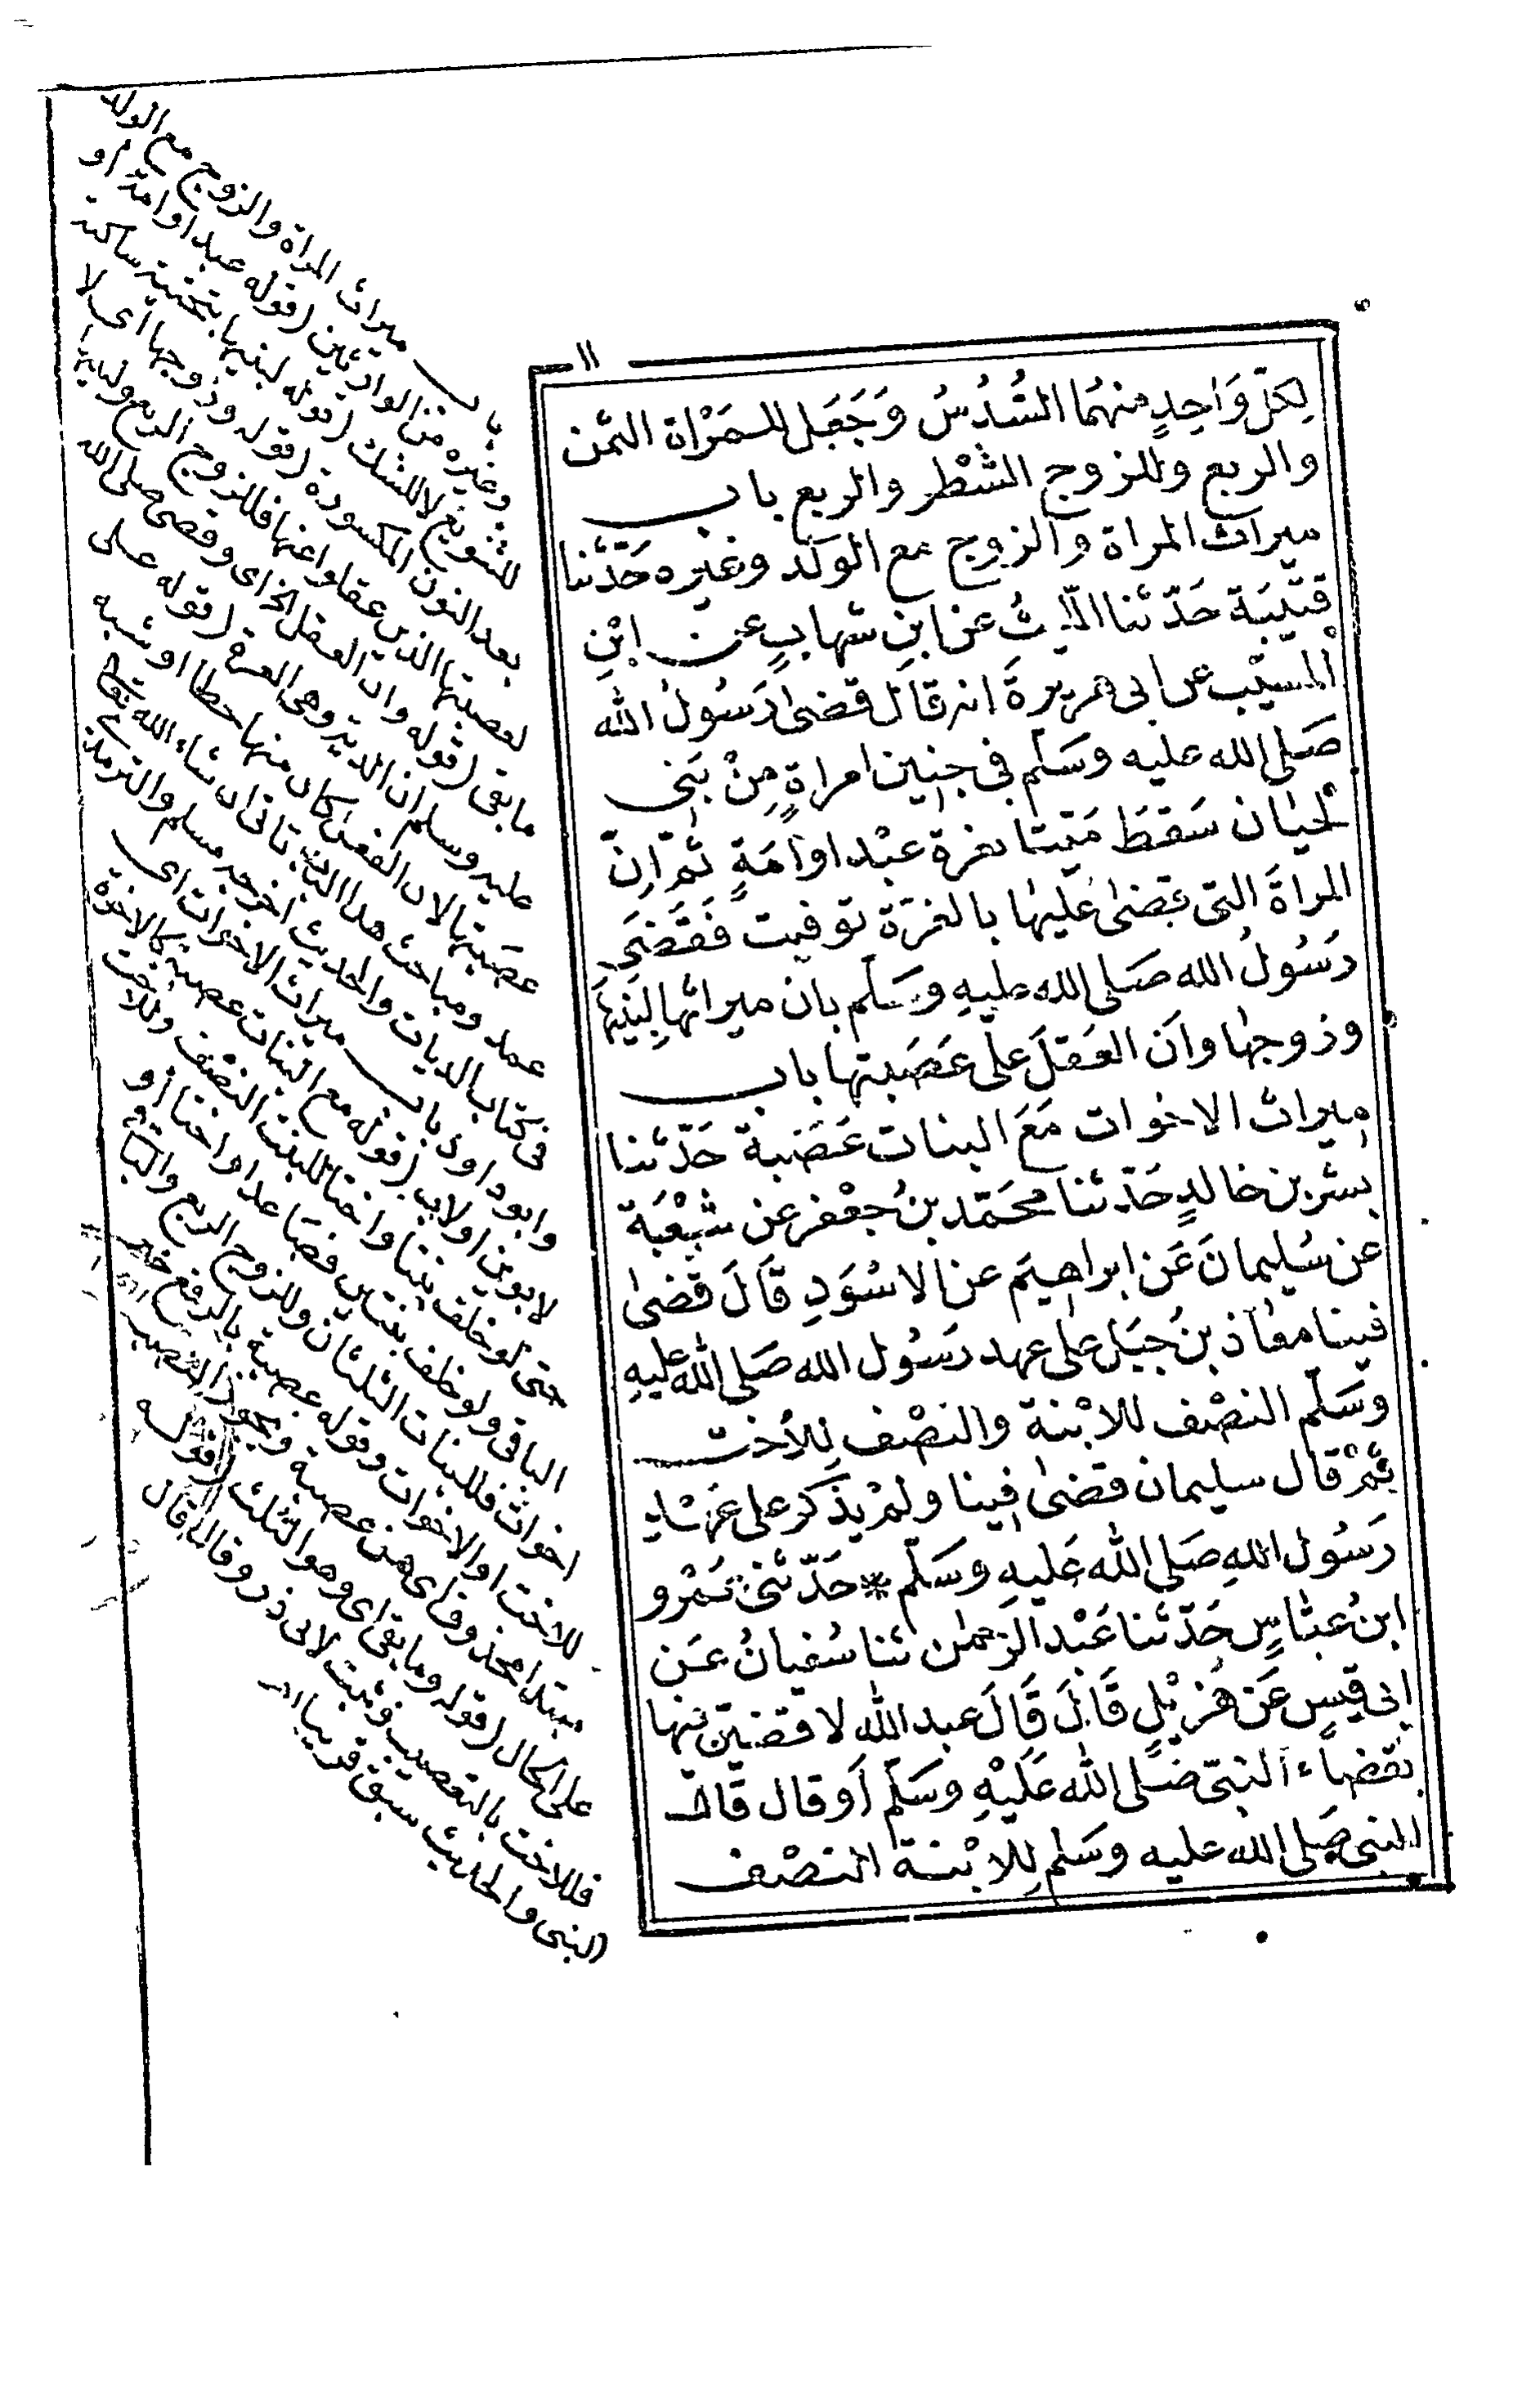 ١١
لِكلّ وَاحِدٍ منهُمَا السُّدُسُ وَجَعَل للمَرْاة الثمن
والربع وللزوج الشطْر والربع باب
ميراث المراة والزوج مع الوَلَد وغيره حَدّثنا
قتيبَة حَدّثنا الليثُ عن ابنِ شهابٍ عن ابْنِ
المسيّب عن ابى هريرةَ انه قاَل قضىٰ رَسُولُ الله
صَلى الله عليه وسَلّم فى جنِين امراةٍ مِنْ بَنِى
لحيَان سَقطَ مَيّتا بغرة عبْد او اَمَةٍ ثم اِنّ
المراةَ التى قضىٰ عَليهٰا بالغرّة توفيت فَقَضَى
رَسُولُ الله صَلى الله عليهِ وسَلّم بان ميراثها لِبَنِيهَا
وزوجهٰا واَن العَقلَ علٰى عَصَبتها باب
ميراث الاخوات مَعَ البنات عَصَبة حَدّثنا
بشر بن خالدٍ حَدّثنا محمّد بنُ جعْفر عن شُعْبَة
عن سُليمانَ عَن ابراهيَم عن الاسْوَدِ قَالَ قضىٰ
فينا معَاذ بنُ جبَل علٰى عهد رَسُول الله صَلى الله عليهِ
وسَلّم النصْف للابْنة والنصْف لِلأخت
ثمْ قال سليمان قضىٰ فينا ولمْ يذكر على عَهْدِ
رَسُول اللهِ صَلى الله عَليهِ وسَلّم * حَدّثنى عَمْرو
ابنُ عبّاسٍ حَدّثنا عَبْد الرّحمٰن ثنا سُفيانُ عَن
ابى قيسٍ عَن هُزَيْلٍ قَالَ قَالَ عبد الله لاقضيَن فيها
بقضاء النبىّ صَلى الله عَليْهِ وسَلّم اَو قال قَال
النبى صَلى الله عليه وسَلم لِلابْنة النصْف
باب ميراث المراة والزوج مع الولد
وغيره من الوارثين (قوله عبد او امة او
للتنويع لا للشك (قوله لبنيها بتحتية ساكنة
بعد النون المكسورة (قوله وزوجها اى لا
لعصبتها الذين عقلوا عنها فللزوج الربع ولبنيها
ما بقى (قوله وان العقل الخ اى وقضى صلى الله
عليه وسلم ان الدية وهى الغرة (قوله على
عصبتها لان القتل كان منها خطا او شبه
عمد ومباحث هذا الباب تاتى ان شاء الله تعالى
فى كتاب الديات والحديث اخرجه مسلم والترمذى
وابو داود باب ميراث الاخوات اى
لابوين او لاب (قوله مع البنات عصبة كالاخوة
حتى لو خلف بنتا واختا للبنت النصف وللاخت
الباقى ولو خلف بنتين فصاعدا واختا او
اخوات فللبنات الثلثان وللزوج الربع والباقى
للاخت او الاخوات وقوله عصبة بالرفع خبر
مبتدا محذوف اى هن عصبة ويجوز النصب
على الحال (قوله وما بقى اى وهو الثلث (قوله
فللاخت بالتعصيب وثبت لابى ذر وقال قال
النبى والحديث سبق قريبا